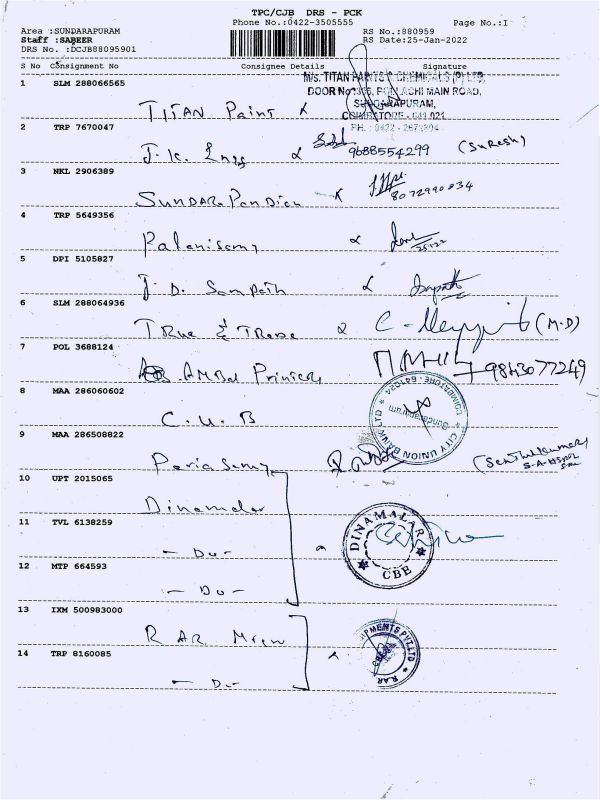 TPC/CJB DRS - PCK
Phone No.:0422-3505555
Page No.:1
Area :SUNDARAPURAM
RS No.:880959
Staff :SABEER
RS Date:25-Jan-2022
DRS No. :DCJB88095901
S No Consignment No Consignee Details Signature
1 SLM 288066565
M/s. TITAN PAINTS & CHEMICALS (P) LTD,
DOOR No: MAIN ROAD,
SUNDARAPURAM,
COIMBATORE - 641 021
TITAN Paint
2 TRP 7670047
J.K. Engg 9688554299 (Suresh)
3 NKL 2906389
SUNDARA PanDian
4 TRP 5649356
Palanisamy
5 DPI 5105827
J. D. Sampath
6 SLM 288064936
True & Trade (M.D)
7 POL 3688124
AMBal Printers 9843077249
8 MAA 286060602
C.U.B
CITY UNION BANK LTD
Sundarapuram
COIMBATORE - 641024
9 MAA 286508822
Peria Samy (Senthilkumar)
10 UPT 2015065
Dinamalar
11 TVL 6138259
- Do -
DINAMALAR
CBE
12 MTP 664593
- Do -
13 IXM 500983000
RAR
14 TRP 8160085
- Do -
PVT.LTD
RAR